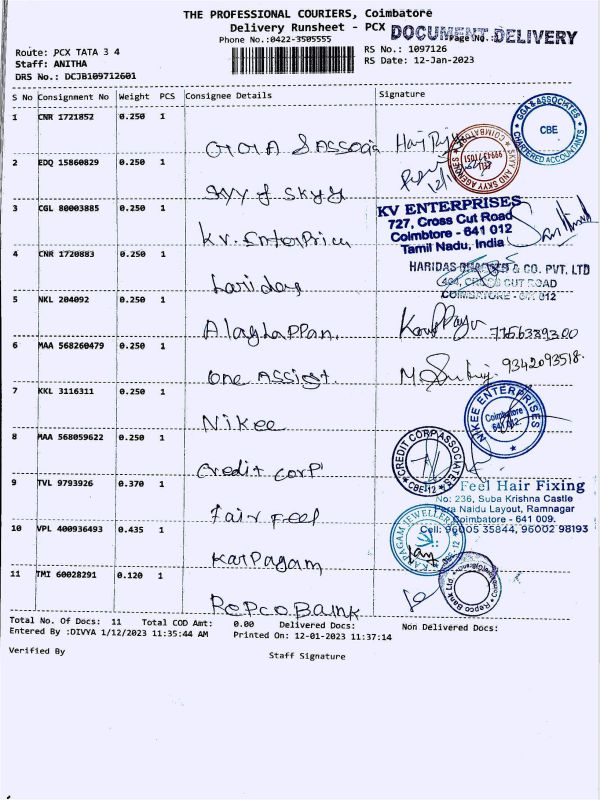 THE PROFESSIONAL COURIERS, Coimbatore
Delivery Runsheet - PCX
DOCUMENT DELIVERY
Phone No.:0422-3505555
Page No.:
Route: PCX TATA 3 4
RS No.: 1097126
Staff: ANITHA
RS Date: 12-Jan-2023
DRS No.: DCJB109712601
S No Consignment No Weight PCS Consignee Details Signature
1 CNR 1721852 0.250 1
GGA & ASSOCIATES CHARTERED ACCOUNTANTS CBE
SKYY AND SKYY AGENCIES COIMBATORE
2 EDQ 15860829 0.250 1
Skyy & Skyy
3 CGL 80003885 0.250 1
KV. Enterprices
KV ENTERPRISES
727, Cross Cut Road
Coimbtore - 641 012
Tamil Nadu, India
4 CNR 1720883 0.250 1
Haridas
HARIDAS & CO. PVT. LTD
404, CROSS CUT ROAD
COIMBATORE - 641 012
5 NKL 204092 0.250 1
Alaghappan.
6 MAA 568260479 0.250 1
One Assist. 9342093518.
7 KKL 3116311 0.250 1
Nikee
NIKEE ENTERPRISES Coimbatore 641 012.
8 MAA 568059622 0.250 1
Credit corp
CREDIT CORP ASSOCIATES CBE-12
9 TVL 9793926 0.370 1
Fair Feel
Feel Hair Fixing
No: 236, Suba Krishna Castle
Pera Naidu Layout, Ramnagar
Coimbatore - 641 009.
Cell: 96005 35844, 96002 98193
10 VPL 400936493 0.435 1
Karpagam
KARPAGAM JEWELLERY
11 TMI 60028291 0.120 1
Repco Bank
Repco Bank Ltd
Total No. Of Docs: 11 Total COD Amt: 0.00 Delivered Docs: Non Delivered Docs:
Entered By :DIVYA 1/12/2023 11:35:44 AM Printed On: 12-01-2023 11:37:14
Verified By
Staff Signature